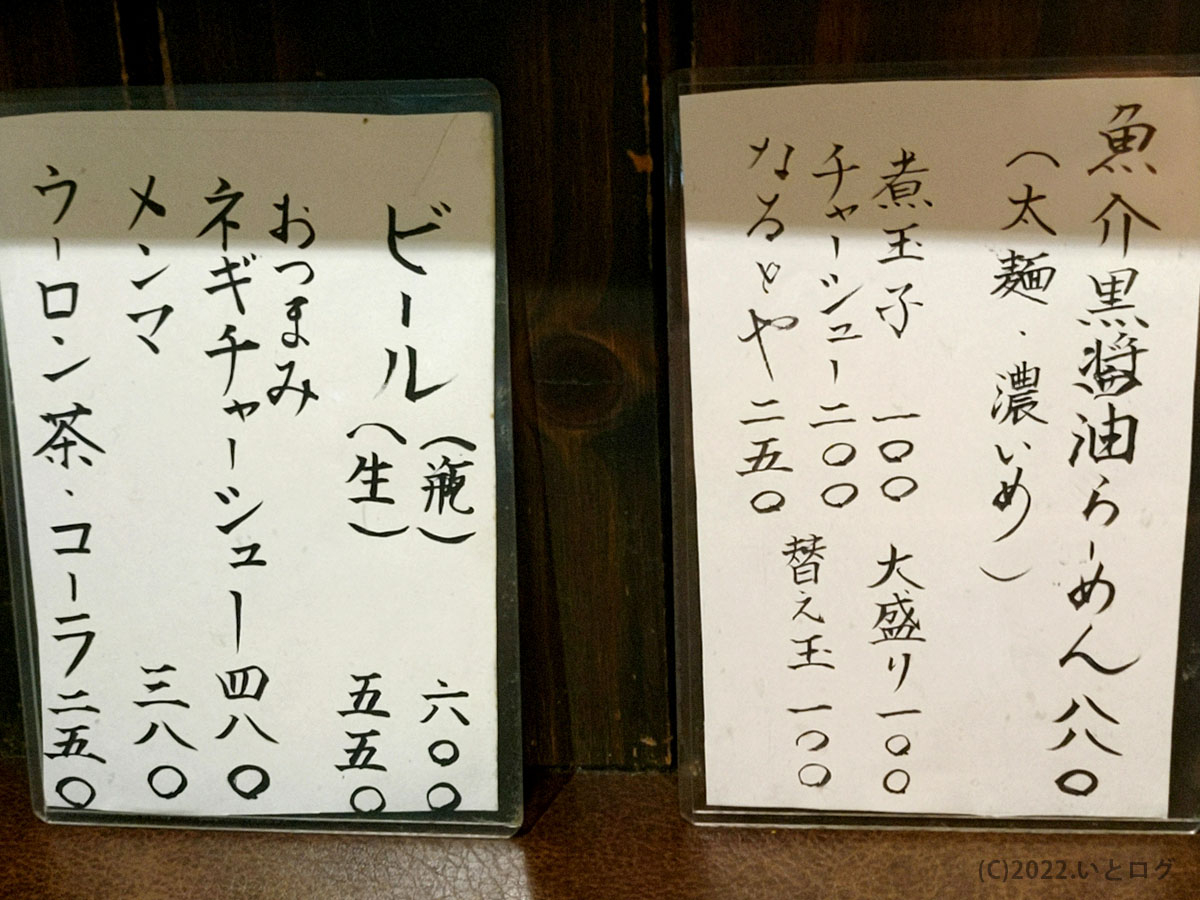 魚介黒醤油らーめん八八〇
（太麺・濃いめ）
煮玉子 一〇〇 大盛り 一〇〇
チャーシュー 二〇〇 替え玉 一〇〇
なるとや 二五〇
ビール（瓶） 六〇〇
（生） 五五〇
おつまみ
ネギチャーシュー四八〇
メンマ 三八〇
ウーロン茶・コーラ二五〇
(C)2022.いとログ